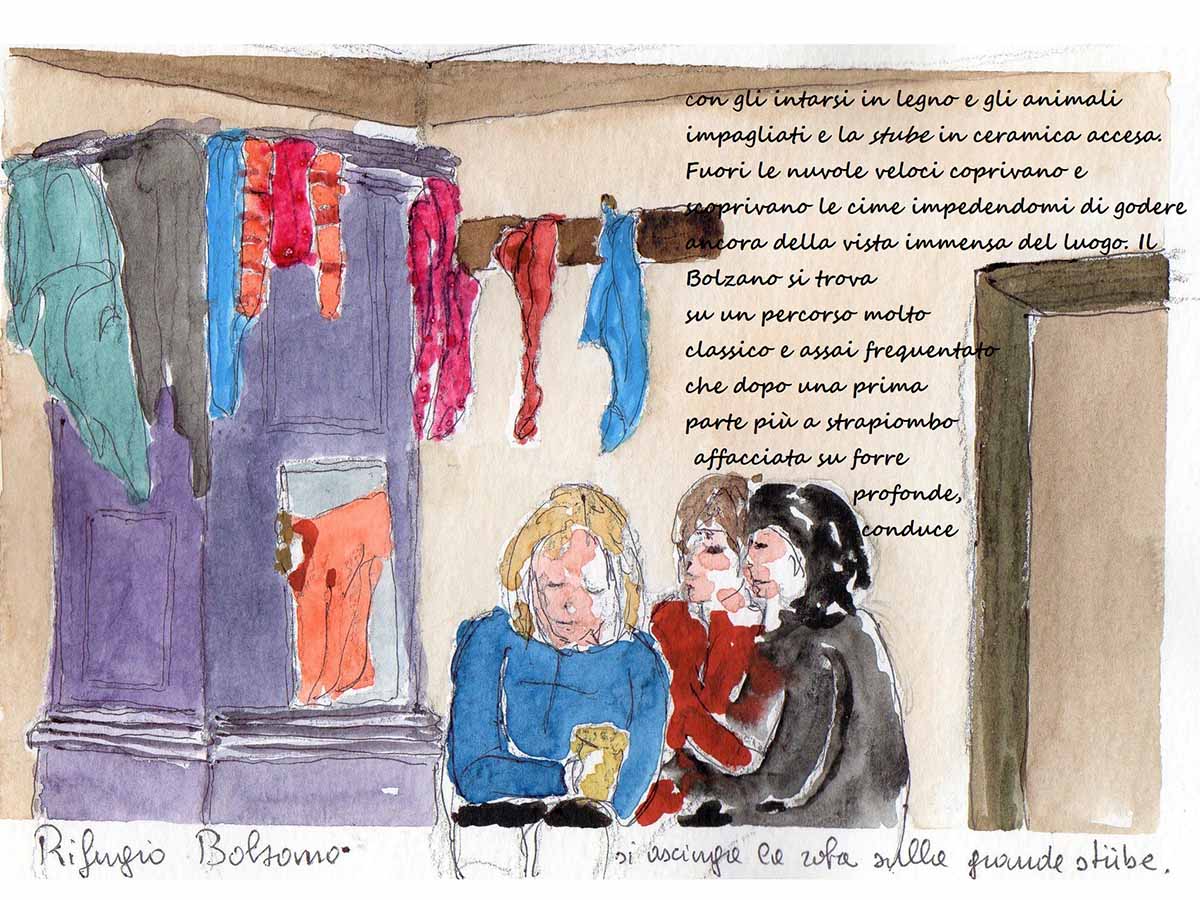 con gli intarsi in legno e gli animali
impagliati e la stube in ceramica accesa.
Fuori le nuvole veloci coprivano e
scoprivano le cime impedendomi di godere
ancora della vista immensa del luogo. Il
Bolzano si trova
su un percorso molto
classico e assai frequentato
che dopo una prima
parte più a strapiombo
affacciata su forre
profonde,
conduce
Rifugio Bolzano.
si asciuga la roba sulla grande stübe.